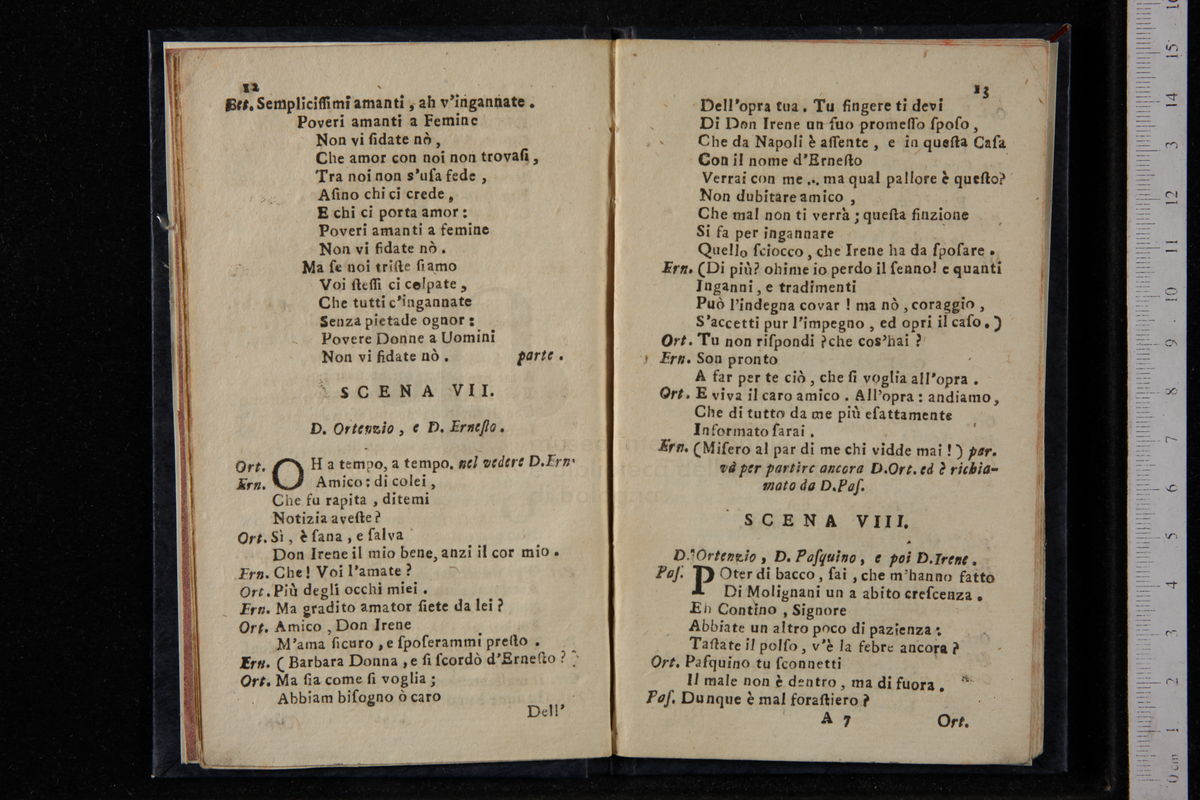 12
Bet. Sempliciſſimi amanti, ah v'ingannate.
Poveri amanti a Femine
Non vi fidate nò,
Che amor con noi non trovaſi,
Tra noi non s'uſa fede,
Aſino chi ci crede,
E chi ci porta amor:
Poveri amanti a femine
Non vi fidate nò.
Ma ſe noi triſte ſiamo
Voi ſteſſi ci colpate,
Che tutti c'ingannate
Senza pietade ognor:
Povere Donne a Uomini
Non vi fidate nò. parte.
SCENA VII.
D. Ortenzio, e D. Erneſto.
Ort. OH a tempo, a tempo. nel vedere D.Ern.
Ern. Amico: di colei,
Che fu rapita, ditemi
Notizia aveſte?
Ort. Sì, è ſana, e ſalva
Don Irene il mio bene, anzi il cor mio.
Ern. Che! Voi l'amate?
Ort. Più degli occhi miei.
Ern. Ma gradito amator ſiete da lei?
Ort. Amico, Don Irene
M'ama ſicuro, e ſpoſerammi preſto.
Ern. (Barbara Donna, e ſi ſcordò d'Erneſto?)
Ort. Ma ſia come ſi voglia;
Abbiam biſogno ò caro
Dell'
13
Dell'opra tua. Tu fingere ti devi
Di Don Irene un ſuo promeſſo ſpoſo,
Che da Napoli è aſſente, e in queſta Caſa
Con il nome d'Erneſto
Verrai con me... ma qual pallore è queſto?
Non dubitare amico,
Che mal non ti verrà; queſta finzione
Si fa per ingannare
Quello ſciocco, che Irene ha da ſpoſare.
Ern. (Di più? ohime io perdo il ſenno! e quanti
Inganni, e tradimenti
Può l'indegna covar! ma nò, coraggio,
S'accetti pur l'impegno, ed opri il caſo.)
Ort. Tu non riſpondi? che cos'hai?
Ern. Son pronto
A far per te ciò, che ſi voglia all'opra.
Ort. E viva il caro amico. All'opra: andiamo,
Che di tutto da me più eſattamente
Informato ſarai.
Ern. (Miſero al par di me chi vidde mai!) par.
và per partire ancora D.Ort. ed è richia-
mato da D.Paſ.
SCENA VIII.
D. Ortenzio, D. Paſquino, e poi D.Irene.
Paſ. POter di bacco, ſai, che m'hanno fatto
Di Molignani un a abito creſcenza.
Eh Contino, Signore
Abbiate un altro poco di pazienza:
Taſtate il polſo, v'è la febre ancora?
Ort. Paſquino tu ſconnetti
Il male non è dentro, ma di fuora.
Paſ. Dunque è mal foraſtiero?
A 7 Ort.